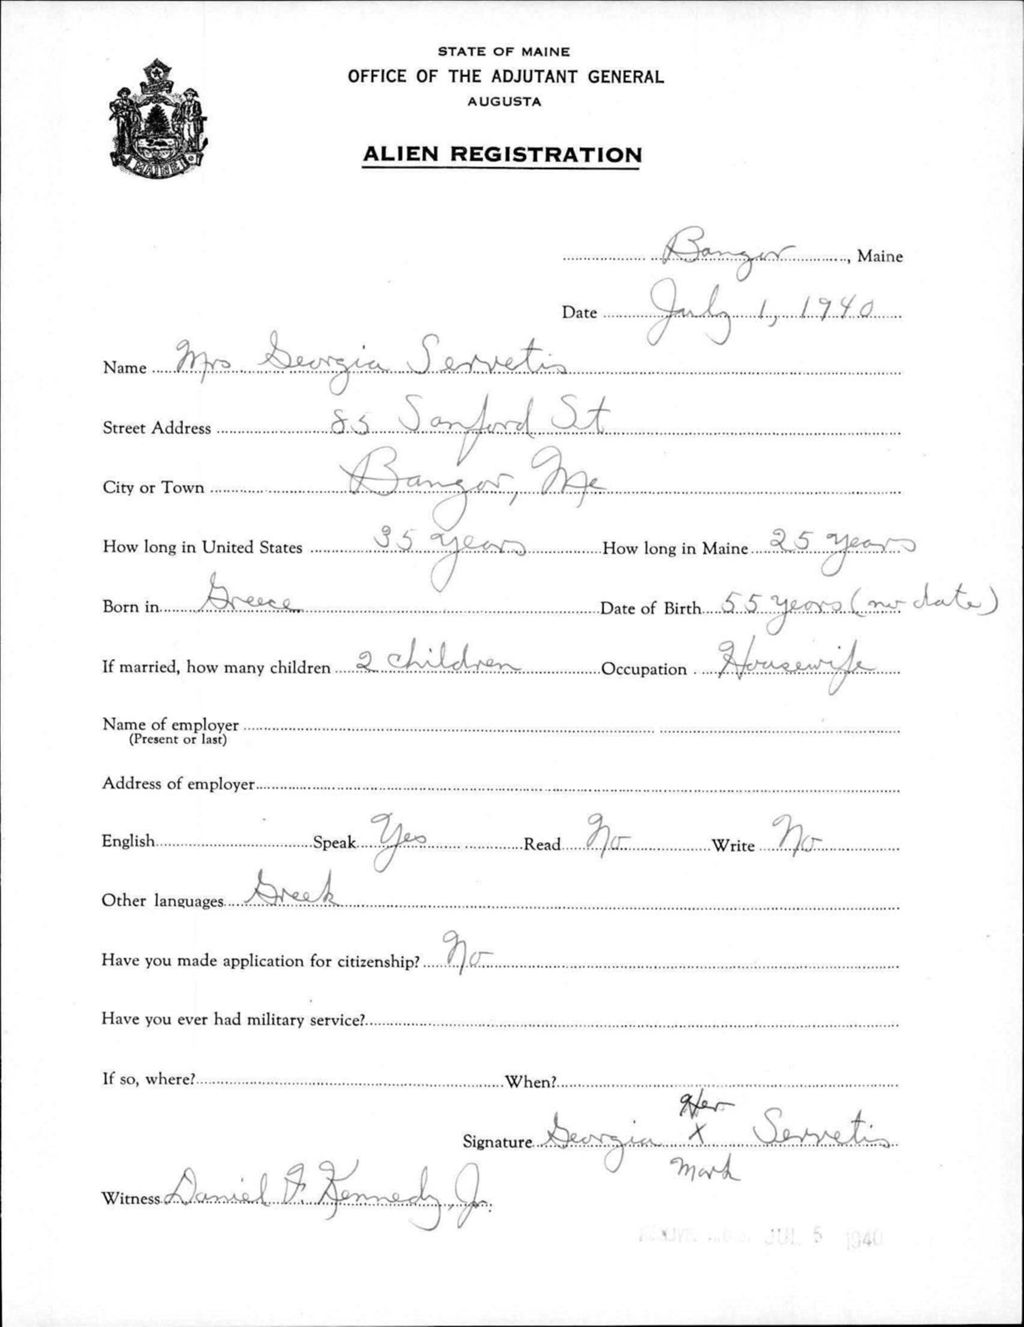 STATE OF MAINE
OFFICE OF THE ADJUTANT GENERAL
AUGUSTA
ALIEN REGISTRATION
MAINE
Bangor, Maine
Date July 1, 1940
Name Mrs Georgia Servetis
Street Address 85 Sanford St
City or Town Bangor, Me
How long in United States 35 years How long in Maine 25 years
Born in Greece Date of Birth 55 years (no date)
If married, how many children 2 children Occupation Housewife
Name of employer
(Present or last)
Address of employer
English Speak Yes Read No Write No
Other languages Greek
Have you made application for citizenship? No
Have you ever had military service?
If so, where? When?
Her
Signature Georgia X Servetis
Mark
Witness Daniel F. Kennedy, Jr.
JUL 5 1940